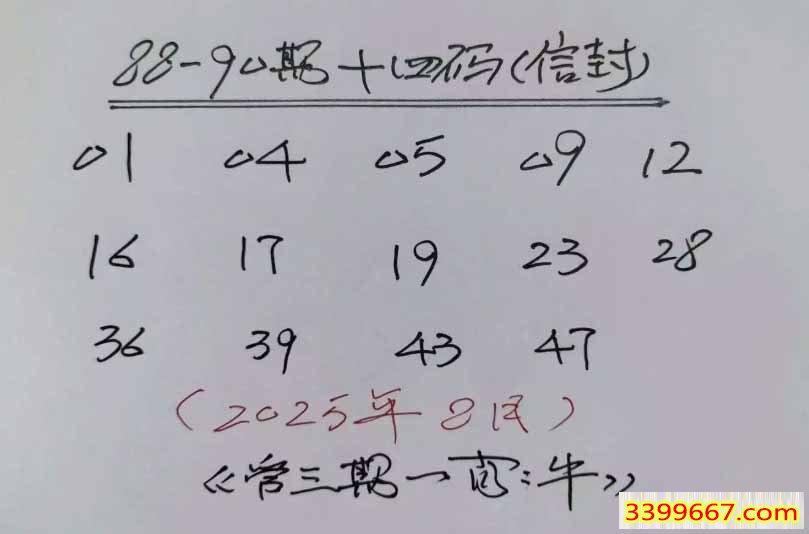 88-90期十四码(信封)
01 04 05 09 12
16 17 19 23 28
36 39 43 47
(2025年8月)
《管三期一肖:牛》
3399667.com